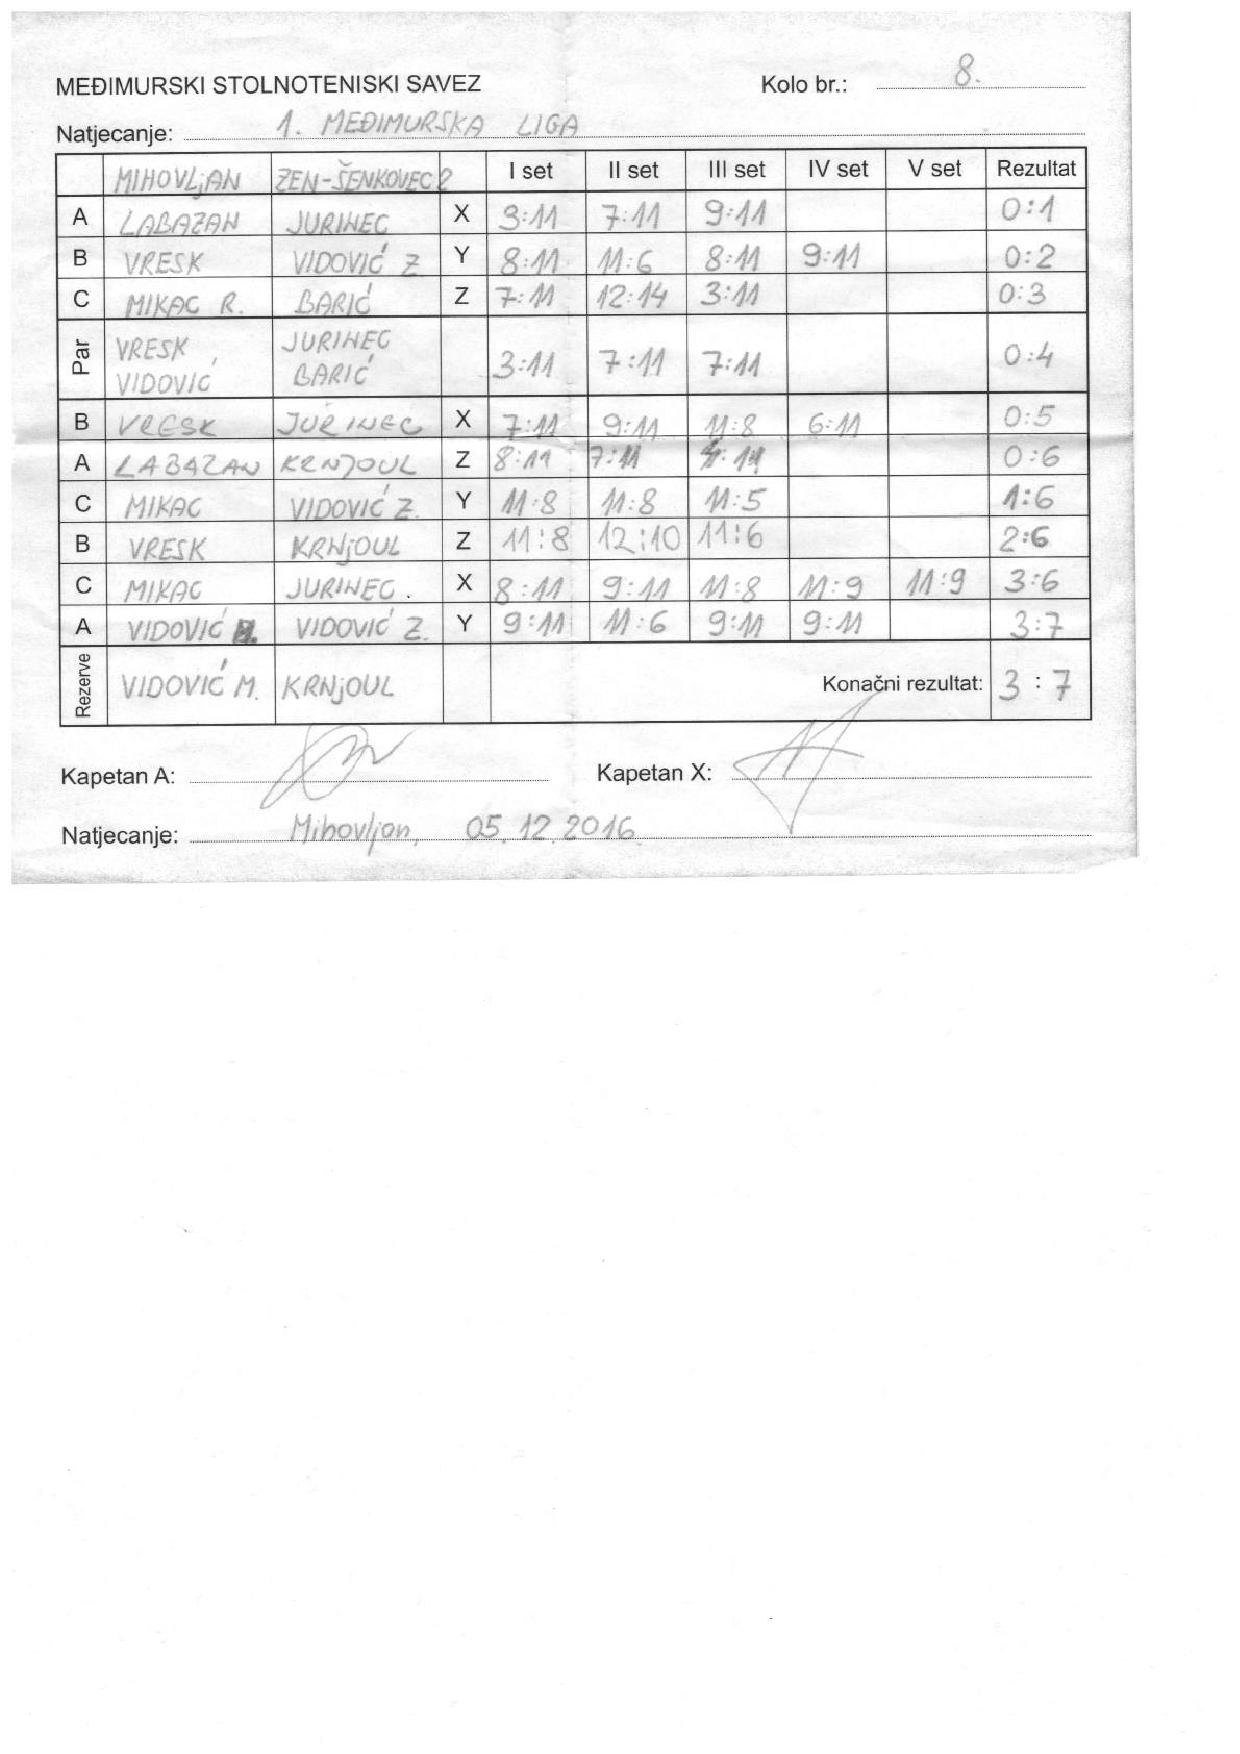 MEĐIMURSKI STOLNOTENISKI SAVEZ Kolo br.: 8.
Natjecanje: 1. MEĐIMURSKA LIGA
MIHOVLjAN ZEN-ŠENKOVEC 2 I set II set III set IV set V set Rezultat
A LABAZAN JURINEC X 3:11 7:11 9:11 0:1
B VRESK VIDOVIĆ Z Y 8:11 11:6 8:11 9:11 0:2
C MIKAC R. BARIĆ Z 7:11 12:14 3:11 0:3
Par VRESK, VIDOVIĆ JURINEC BARIĆ 3:11 7:11 7:11 0:4
B VRESK JURINEC X 7:11 9:11 11:8 6:11 0:5
A LABAZAN KRNJOUL Z 8:11 7:11 0:6
C MIKAC VIDOVIĆ Z. Y 11:8 11:8 11:5 1:6
B VRESK KRNjOUL Z 11:8 12:10 11:6 2:6
C MIKAC JURINEC. X 8:11 9:11 11:8 11:9 11:9 3:6
A VIDOVIĆ M. VIDOVIĆ Z. Y 9:11 11:6 9:11 9:11 3:7
Rezerve VIDOVIĆ M. KRNjOUL Konačni rezultat: 3:7
Kapetan A: Kapetan X:
Natjecanje: Mihovljan, 05.12.2016.